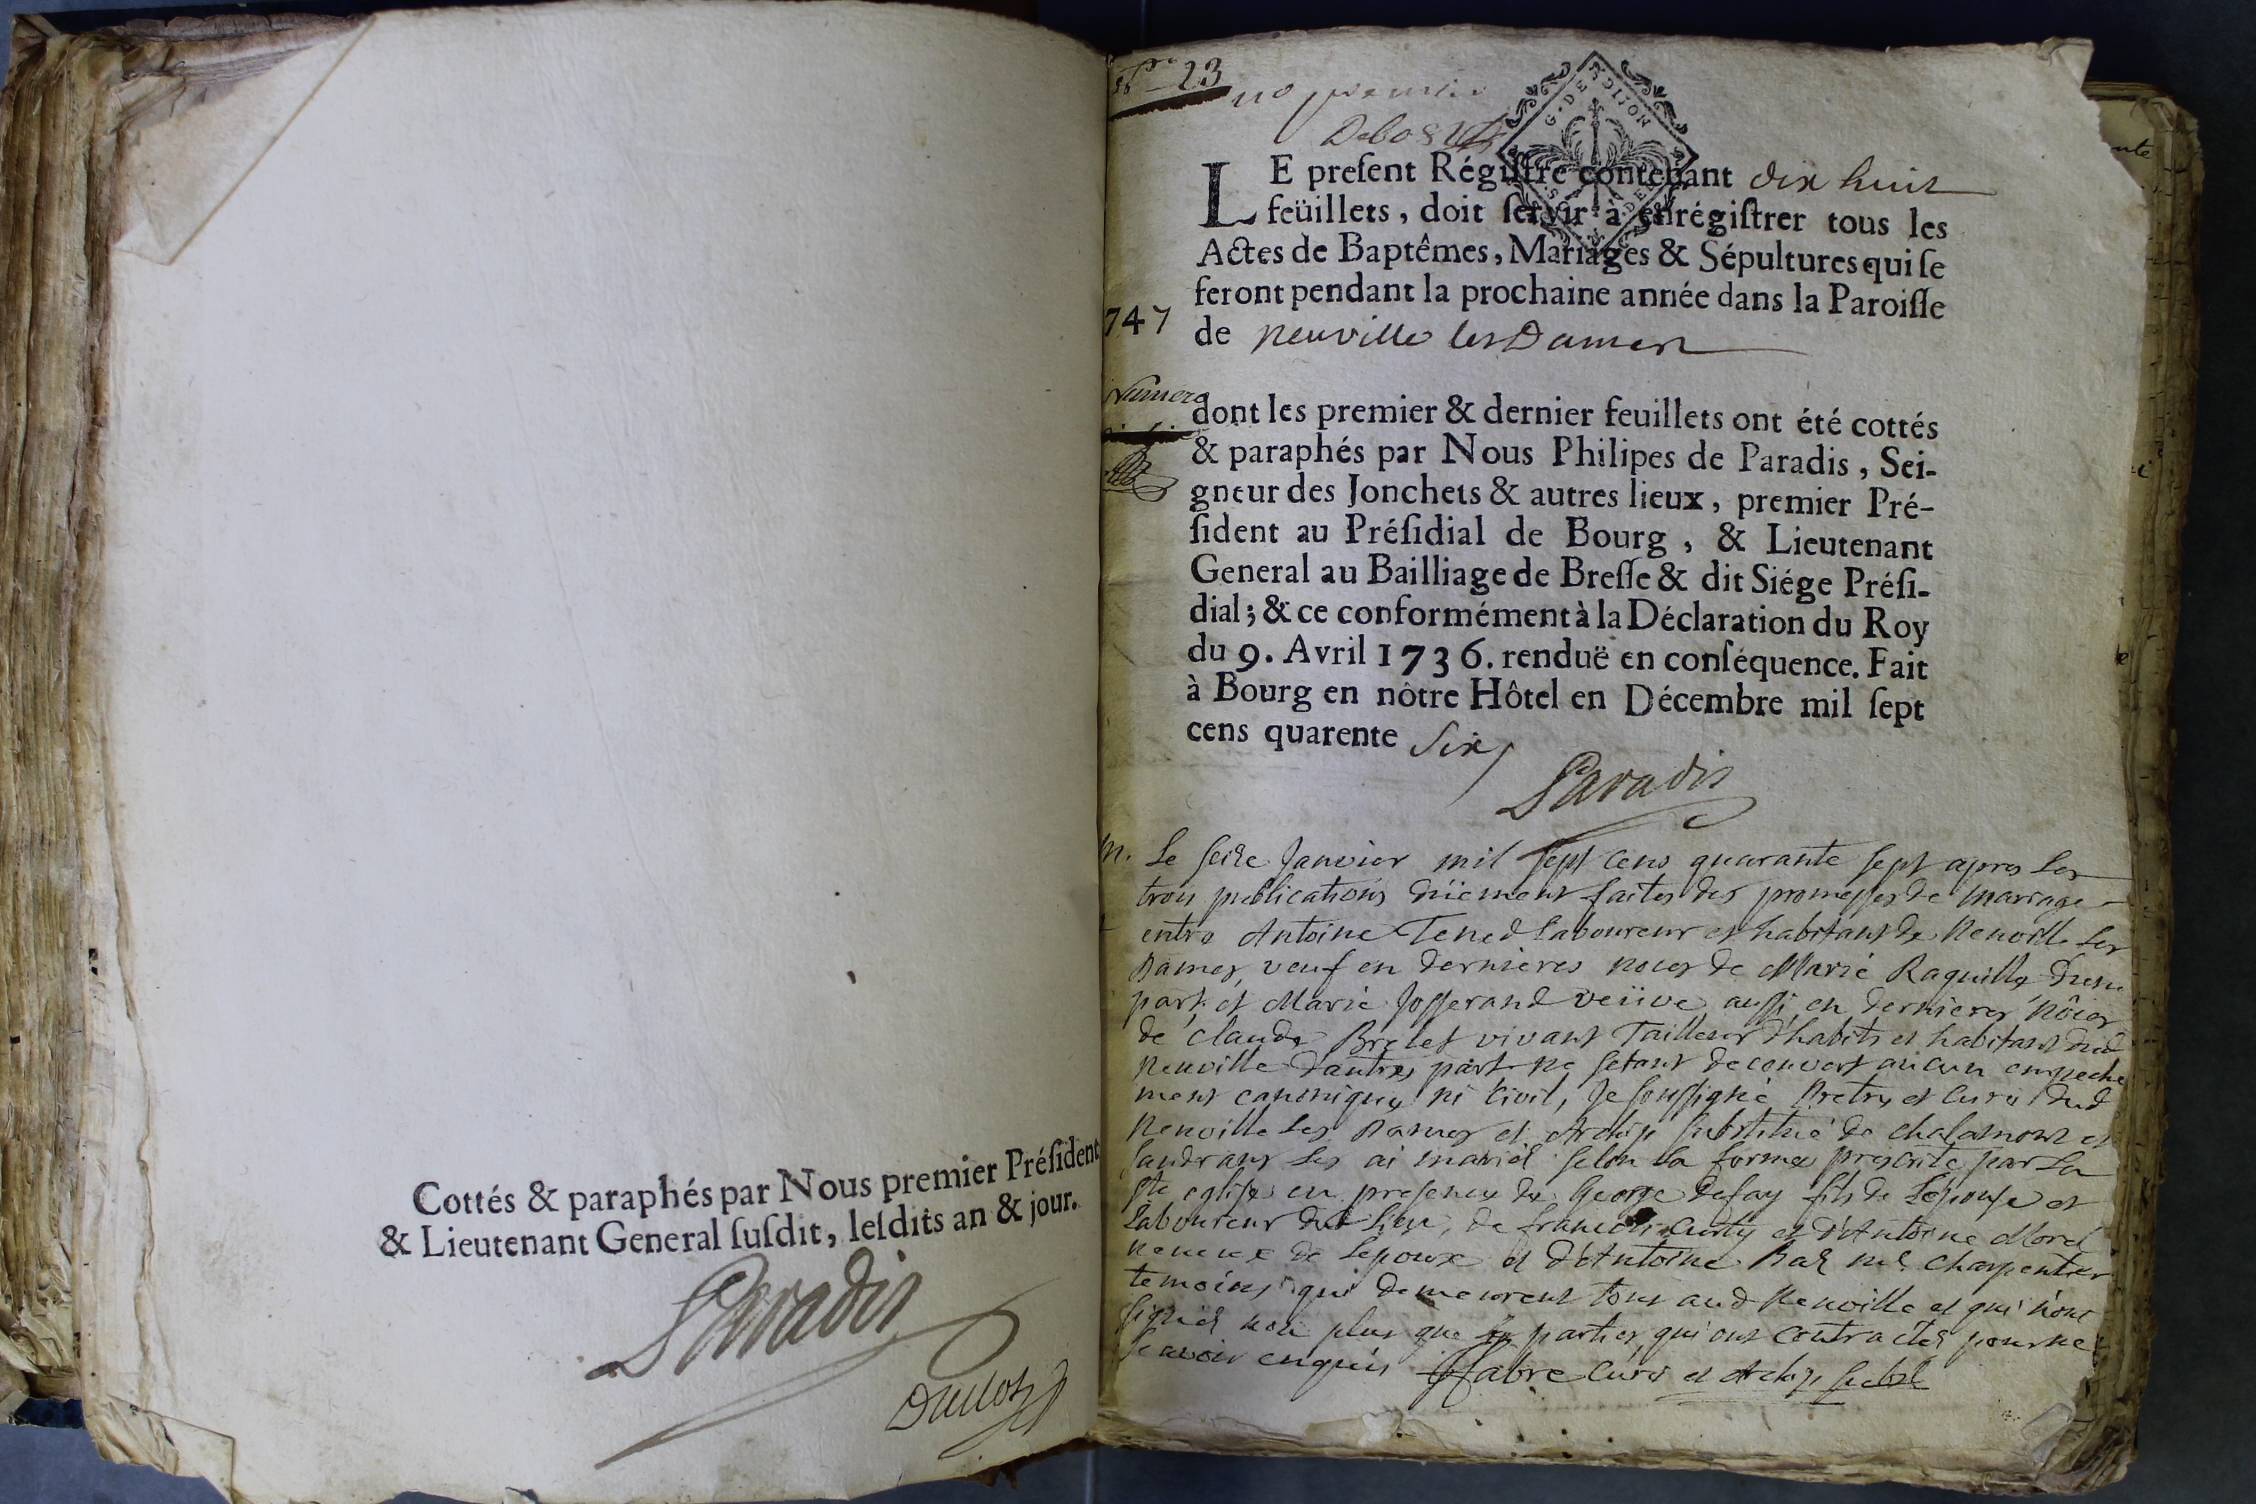 Cottés & paraphés par Nous premier Préſident
& Lieutenant General ſuſdit, leſdits an & jour.
Paradis
23
premier
G. DE DIJON
LE preſent Régiſtre contenant dix huit
feüillets, doit ſervir à enrégiſtrer tous les
Actes de Baptêmes, Mariages & Sépultures qui ſe
feront pendant la prochaine année dans la Paroiſſe
747
de neuville les Dames
Numero
dont les premier & dernier feuillets ont été cottés
& paraphés par Nous Philipes de Paradis, Sei-
gneur des Jonchets & autres lieux, premier Pré-
ſident au Préſidial de Bourg, & Lieutenant
General au Bailliage de Breſſe & dit Siége Préſi-
dial; & ce conformément à la Déclaration du Roy
du 9. Avril 1736. renduë en conſéquence. Fait
à Bourg en nôtre Hôtel en Décembre mil ſept
cens quarente Six
Paradis
m. Le seize Janvier mil sept cens quarante sept apres les
trois publications düement faites des promesses de mariage
entre Antoine Tened Laboureur et habitant de Neuville les
Dames, veuf en dernieres noces de Marie Raquille d'une
part, et Marie Josserand veüve aussi en dernieres nôces
de Claude Brelet vivant Tailleur d'habits et habitant dud
Neuville d'autre part ne setant decouvert aucun empeche
ment canonique ni Civil, Je soussigné Pretre et Curé dud
Neuville les Dames et Archip substitué de chalamont et
sandrans les ai mariés selon la forme prescrite par la
ste eglise en presence de George defay fils de L'épouse et
Laboureur dud lieu, de francois Curty et d'Antoine Morel
neveux de Lepoux et d'Antoine Raz me. Charpentier
temoins qui demeurent tous aud Neuville et qui n'ont
signés non plus que les parties qui ont contractés pour ne
sçavoir enquis Fabre Curé et Archip subst